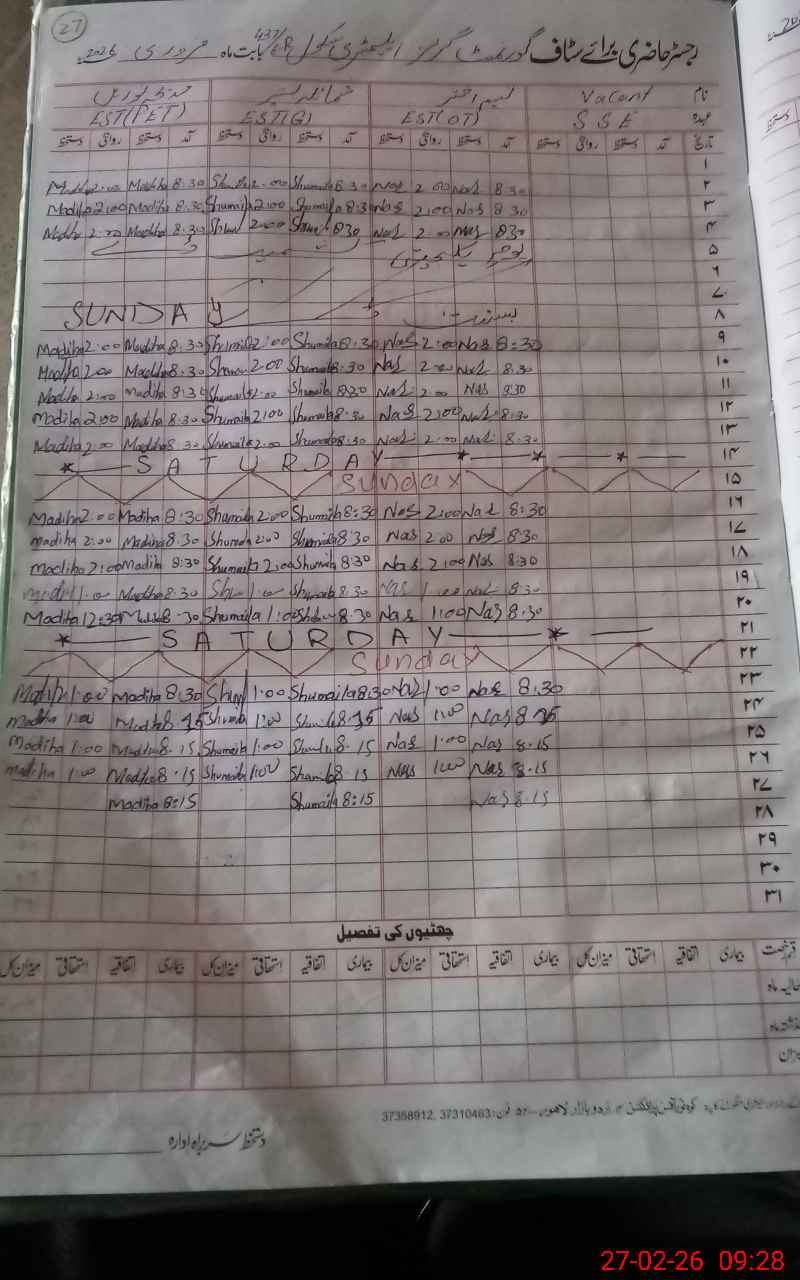 27
رجسٹر حاضری برائے سٹاف گورنمنٹ گرلز ایلیمنٹری سکول 437 بابت ماہ فروری 2026
نام Vacant نسیم اختر شمائلہ
عہدہ SSE EST(OT) EST(G) EST(PET)
تاریخ آمد دستخط روانگی دستخط آمد دستخط روانگی دستخط آمد دستخط روانگی دستخط آمد دستخط روانگی دستخط
۱
Madiha 2:00 Madiha 8:30 Shumaila 2:00 Shumaila 8:30 Nas 2:00 Nas 8:30 ۲
Madiha 2:00 Madiha 8:30 Shumaila 2:00 Shumaila 8:30 Nas 2:00 Nas 8:30 ۳
Madiha 2:00 Madiha 8:30 2:00 8:30 Nas 2:00 Nas 8:30 ۴
۵
۶
۷
SUNDAY ۸
Madiha 2:00 Madiha 8:30 Shumaila 2:00 Shumaila 8:30 Nas 2:00 Nas 8:30 ۹
Madiha 2:00 Madiha 8:30 2:00 Shumaila 8:30 Nas 2:00 Nas 8:30 ۱۰
Madiha 2:00 Madiha 8:30 Shumaila 2:00 Shumaila 8:30 Nas 2:00 Nas 8:30 ۱۱
Madiha 2:00 Madiha 8:30 Shumaila 2:00 Shumaila 8:30 Nas 2:00 Nas 8:30 ۱۲
Madiha 2:00 Madiha 8:30 Shumaila 2:00 Shumaila 8:30 Nas 2:00 Nas 8:30 ۱۳
SATURDAY ۱۴
Sunday ۱۵
Madiha 2:00 Madiha 8:30 Shumaila 2:00 Shumaila 8:30 Nas 2:00 Nas 8:30 ۱۶
madiha 2:00 Madiha 8:30 Shumaila 2:00 Shumaila 8:30 Nas 2:00 Nas 8:30 ۱۷
Madiha 2:00 Madiha 8:30 Shumaila 2:00 Shumaila 8:30 Nas 2:00 Nas 8:30 ۱۸
1:00 Madiha 8:30 1:00 Shumaila 8:30 Nas 1:00 Nas 8:30 ۱۹
Madiha 12:30 8:30 Shumaila 1:00 8:30 Nas 1:00 Nas 8:30 ۲۰
SATURDAY ۲۱
Sunday ۲۲
Madiha 1:00 Madiha 8:30 1:00 Shumaila 8:30 Nas 1:00 Nas 8:30 ۲۳
Madiha 1:00 Madiha 8:15 Shumaila 1:00 8:15 Nas 1:00 Nas 8:15 ۲۴
Madiha 1:00 Madiha 8:15 Shumaila 1:00 8:15 Nas 1:00 Nas 8.15 ۲۵
madiha 1:00 Madiha 8:15 Shumaila 1:00 Shumaila 8:15 Nas 1:00 Nas 8.15 ۲۶
Madiha 8:15 Shumaila 8:15 Nas 8.15 ۲۷
۲۸
۲۹
۳۰
۳۱
چھٹیوں کی تفصیل
قسم رخصت بیماری اتفاقیہ استحقاقی میزان کل بیماری اتفاقیہ استحقاقی میزان کل بیماری اتفاقیہ استحقاقی میزان کل بیماری اتفاقیہ استحقاقی میزان کل
حالیہ ماہ
گذشتہ ماہ
میزان
اردو بازار لاہور۔ فون: 37310463, 37358912
دستخط سربراہ ادارہ
27-02-26 09:28